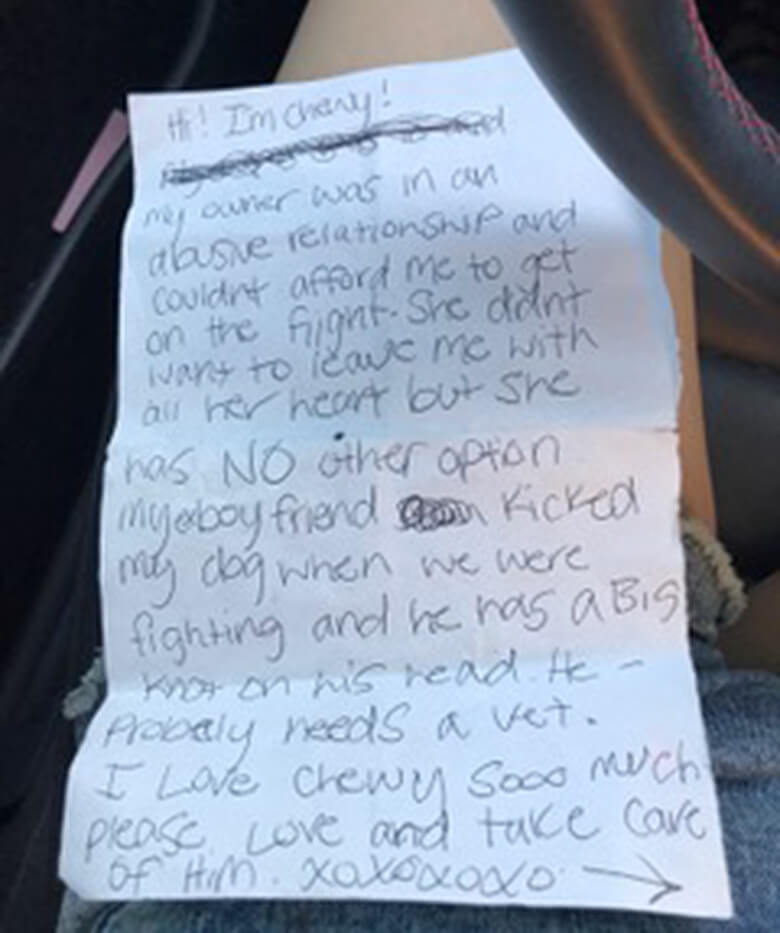 Hi! I'm chewy!
my owner was in an
abusive relationship and
couldnt afford me to get
on the flight. She didnt
want to leave me with
all her heart but she
has NO other option
my exboyfriend kicked
my dog when we were
fighting and he has a Big
knot on his head. He
Probally needs a vet.
I Love Chewy sooo much
please Love and take care
of Him. xoxoxoxo